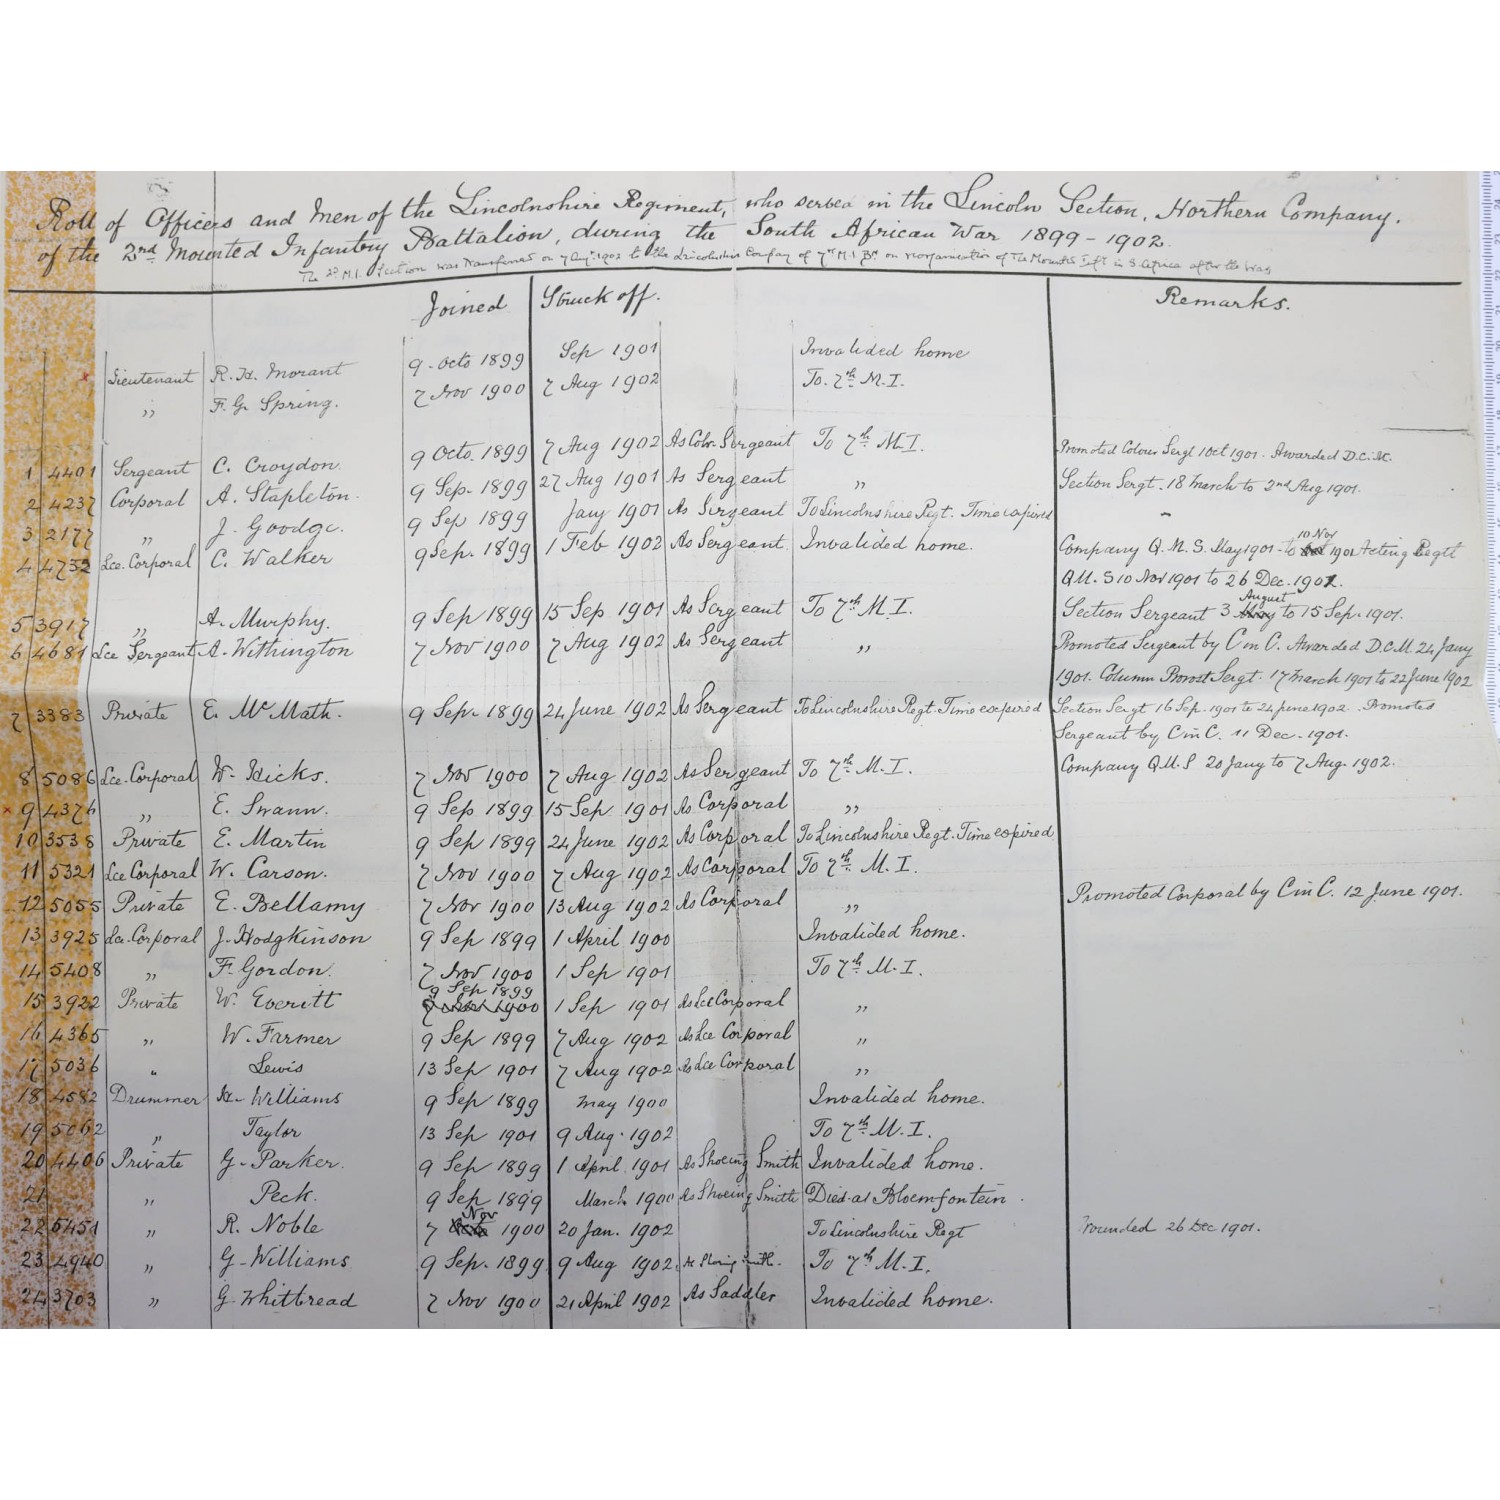 Roll of Officers and Men of the Lincolnshire Regiment, who served in the Lincoln Section, Northern Company.
of the 2nd Mounted Infantry Battalion, during the South African War 1899-1902.
The 2d M.I. Section was transferred on 7 Aug. 1902 to the Lincolnshire Company of 7th M.I. Bn. on reorganisation of the Mounted Inft in S. Africa after the War
Joined Struck off. Remarks.
Lieutenant R. H. Morant 9 Octo 1899 Sep 1901 Invalided home
,, F. G. Spring. 7 Nov 1900 7 Aug 1902 To 7th M.I.
1 4401 Sergeant C. Croydon. 9 Octo. 1899 7 Aug 1902 As Colr. Sergeant To 7th M.I. Promoted Colour Sergt 1 Oct 1901. Awarded D.C.M.
2 4237 Corporal A. Stapleton. 9 Sep. 1899 27 Aug 1901 As Sergeant ,, Section Sergt. 18 March to 2nd Aug 1901.
3 2177 ,, J. Goodge. 9 Sep 1899 Jany 1901 As Sergeant To Lincolnshire Regt. Time expired -
4 4732 Lce. Corporal C. Walker 9 Sep. 1899 1 Feb 1902 As Sergeant Invalided home. Company Q.M.S. May 1901 to 10 Nov 1901 Acting Regtl
QM.S 10 Nov 1901 to 26 Dec. 1901.
5 3917 ,, A. Murphy. 9 Sep 1899 15 Sep 1901 As Sergeant To 7th M.I. Section Sergeant 3 August to 15 Sep. 1901.
6 4681 Lce Sergeant A. Withington 7 Nov 1900 7 Aug 1902 As Sergeant ,, Promoted Sergeant by C in C. Awarded D.C.M. 24 Jany
1901. Column Provost Sergt. 17 March 1901 to 22 June 1902
7 3383 Private E. McMath. 9 Sep. 1899 24 June 1902 As Sergeant To Lincolnshire Regt. Time expired Section Sergt 16 Sep. 1901 to 24 June 1902. Promoted
Sergeant by C in C. 11 Dec. 1901.
8 5086 Lce. Corporal W. Hicks. 7 Nov 1900 7 Aug 1902 As Sergeant To 7th M.I. Company Q.M.S 20 Jany to 7 Aug. 1902.
9 4376 ,, E. Swann. 9 Sep 1899 15 Sep. 1901 As Corporal ,,
10 3538 Private E. Martin 9 Sep 1899 24 June 1902 As Corporal To Lincolnshire Regt. Time expired
11 5321 Lce Corporal W. Carson. 7 Nov 1900 7 Aug 1902 As Corporal To 7th M.I.
12 5055 Private E. Bellamy 7 Nov 1900 13 Aug 1902 As Corporal ,, Promoted Corporal by C in C. 12 June 1901.
13 3925 Lce. Corporal J. Hodgkinson 9 Sep 1899 1 April 1900 Invalided home.
14 5408 ,, F. Gordon. 7 Nov 1900 1 Sep 1901 To 7th M.I.
15 3922 Private W. Everitt 9 Sep 1899 7 Nov 1900 1 Sep 1901 As Lce Corporal ,,
16 4365 ,, W. Farmer 9 Sep 1899 7 Aug 1902 As Lce Corporal ,,
17 5036 ,, Lewis 13 Sep 1901 7 Aug 1902 As Lce Corporal ,,
18 4582 Drummer H. Williams 9 Sep 1899 May 1900 Invalided home.
19 5062 ,, Taylor 13 Sep 1901 9 Aug. 1902 To 7th M.I.
20 4406 Private G. Parker. 9 Sep 1899 1 April 1901 As Shoeing Smith Invalided home.
21 ,, Peck. 9 Sep 1899 March 1900 As Shoeing Smith Died at Bloemfontein.
22 5451 ,, R. Noble 7 Nov 1900 20 Jan. 1902 To Lincolnshire Regt Wounded 26 Dec 1901.
23 4940 ,, G. Williams 9 Sep. 1899 9 Aug 1902. As Shoeing Smith. To 7th M.I.
24 3703 ,, G. Whitbread 7 Nov 1900 21 April 1902 As Saddler Invalided home.